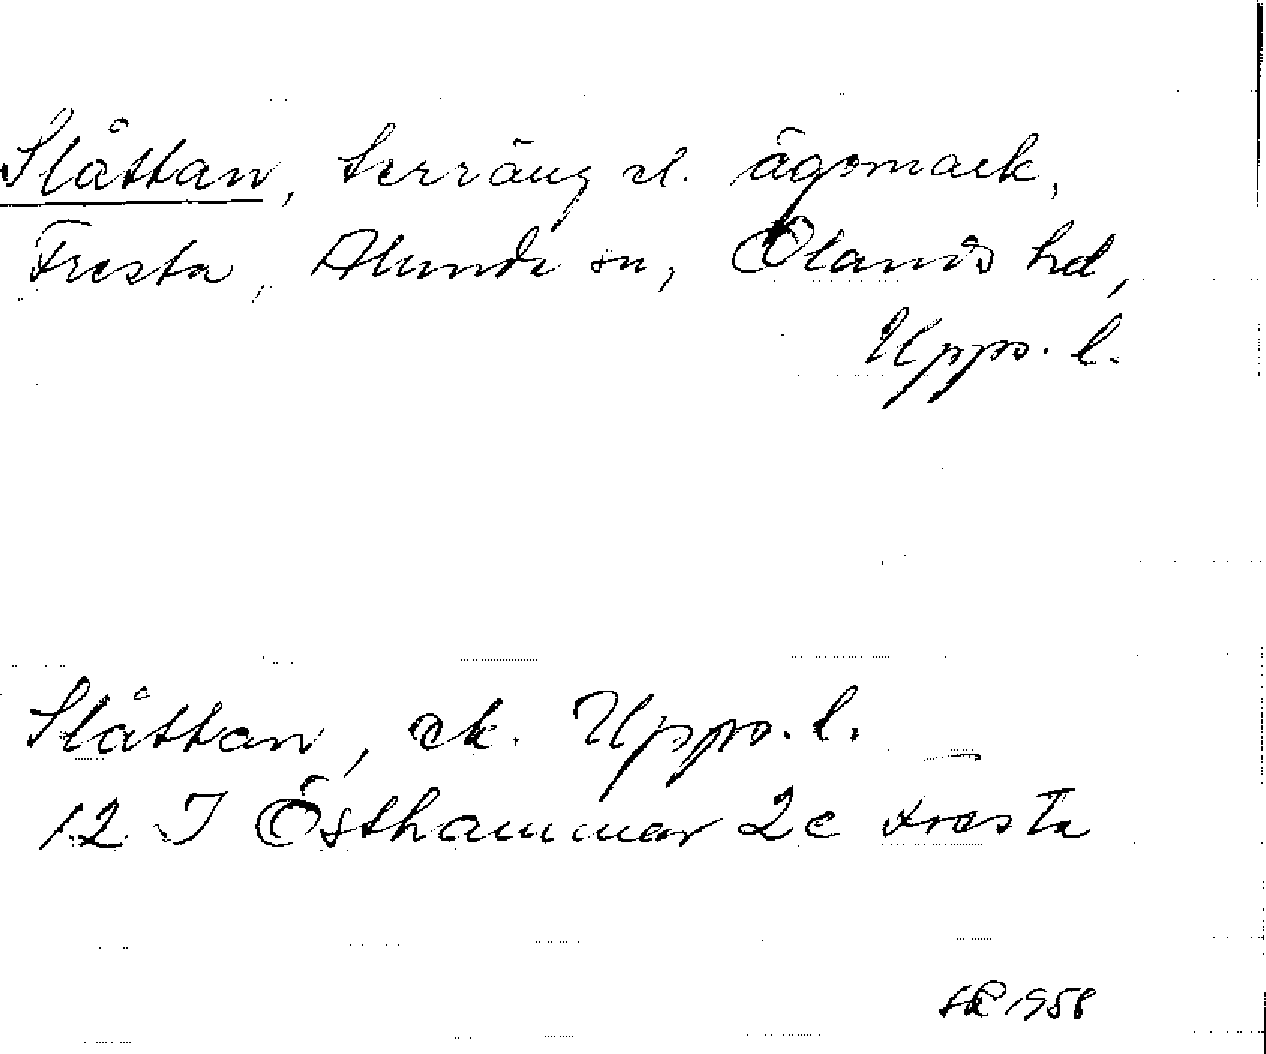 Slåttan, terräng el. ägomark,
Fresta, Alunda sn, Olands hd,
Upps. l.
Slåttan, ek. Upps. l.
12 I Östhammar 2c Fresta
1958